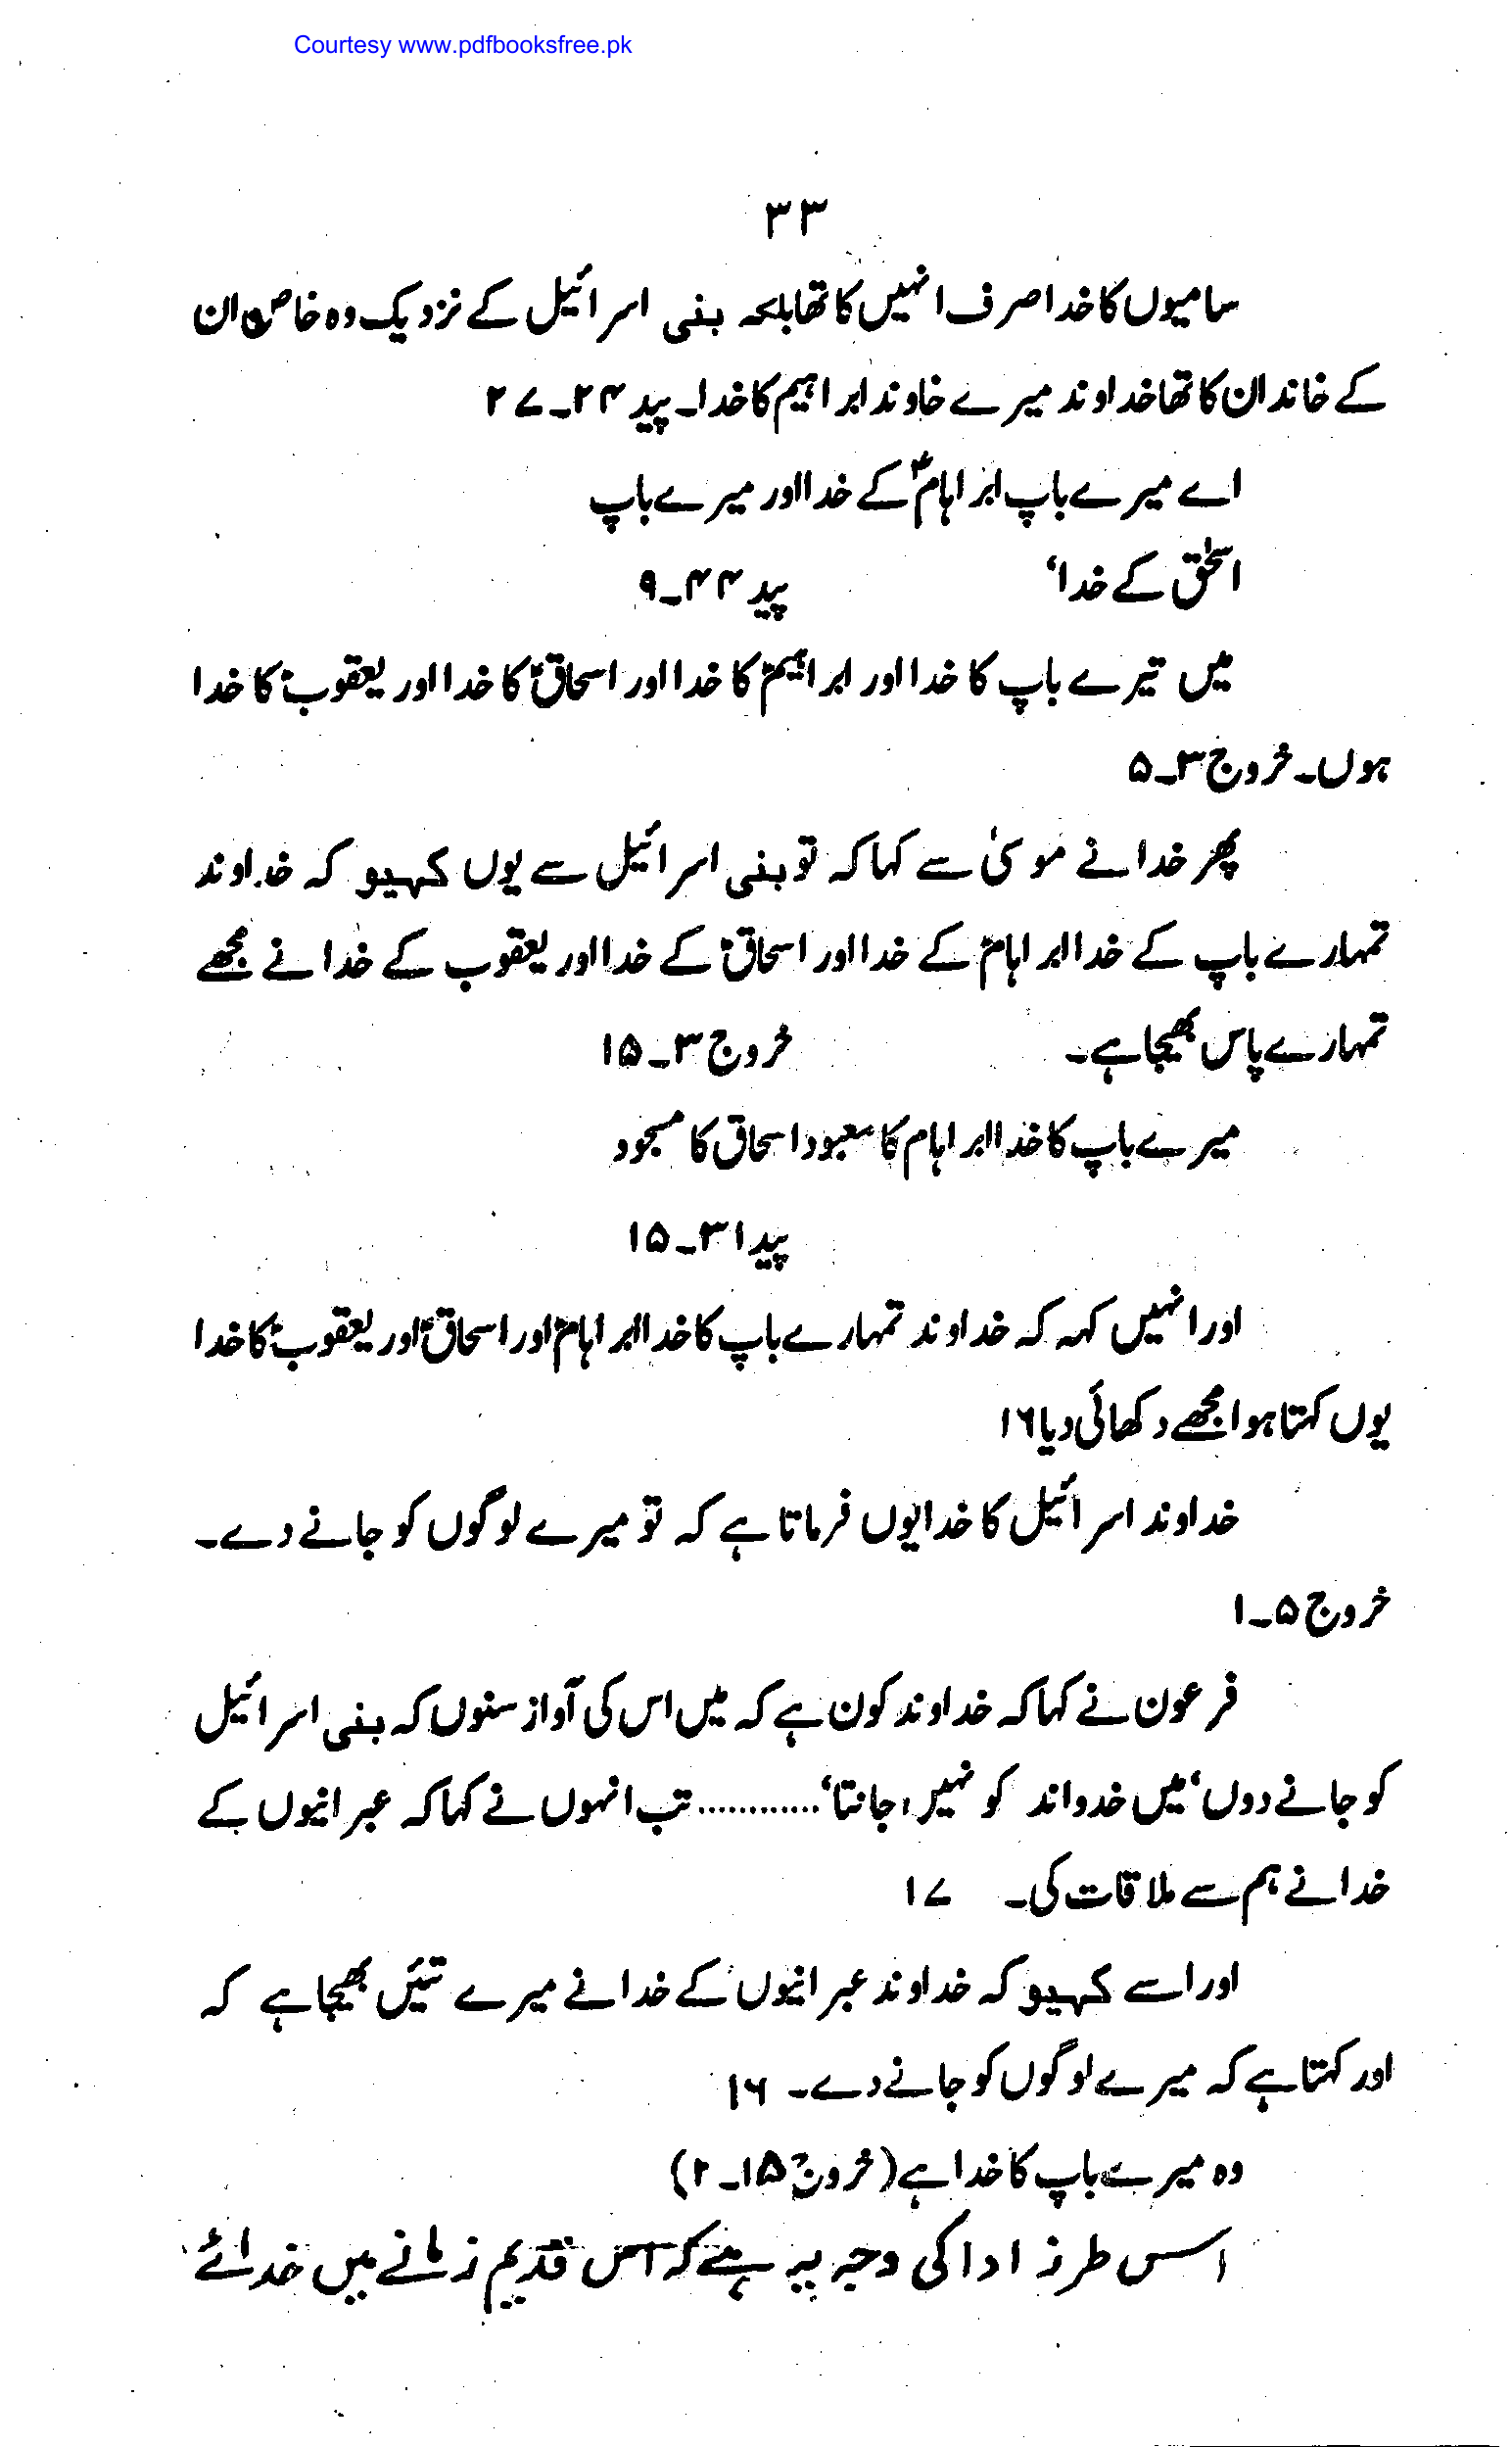 Courtesy www.pdfbooksfree.pk
۳۳
سامیوں کا خدا صرف انہیں کا تھا بلکہ بنی اسرائیل کے نزدیک وہ خاص ان
کے خاندان کا تھا خداوند میرے خاوند ابراہیم کا خدا۔ پید ۲۴۔۲۷
اے میرے باپ ابراہامؑ کے خدا اور میرے باپ
اسحٰق کے خدا، پید ۴۴۔۹
میں تیرے باپ کا خدا اور ابراہیمؑ کا خدا اور اسحاقؑ کا خدا اور یعقوبؑ کا خدا
ہوں۔ خروج ۳۔۵
پھر خدا نے موسیٰ سے کہا کہ تو بنی اسرائیل سے یوں کہیو کہ خداوند
تمہارے باپ کے خدا ابراہامؑ کے خدا اور اسحاقؑ کے خدا اور یعقوب کے خدا نے مجھے
تمہارے پاس بھیجا ہے۔ خروج ۳۔۱۵
میرے باپ کا خدا ابراہام کا معبود اسحاق کا مسجود
پید ۳۱۔۱۵
اور انہیں کہہ کہ خداوند تمہارے باپ کا خدا ابراہامؑ اور اسحاقؑ اور یعقوبؑ کا خدا
یوں کہتا ہوا مجھے دکھائی دیا ۱۶
خداوند اسرائیل کا خدا یوں فرماتا ہے کہ تو میرے لوگوں کو جانے دے۔
خروج ۵۔۱
فرعون نے کہا کہ خداوند کون ہے کہ میں اس کی آواز سنوں کہ بنی اسرائیل
کو جانے دوں، میں خدواند کو نہیں جانتا،............ تب انہوں نے کہا کہ عبرانیوں کے
خدا نے ہم سے ملاقات کی۔ ۱۷
اور اسے کہیو کہ خداوند عبرانیوں کے خدا نے میرے تئیں بھیجا ہے کہ
اور کہتا ہے کہ میرے لوگوں کو جانے دے۔ ۱۶
وہ میرے باپ کا خدا ہے (خروج ۱۵۔۲)
اسس طرز ادا کی وجہ یہ ہے کہ اس قدیم زمانے میں خدائے